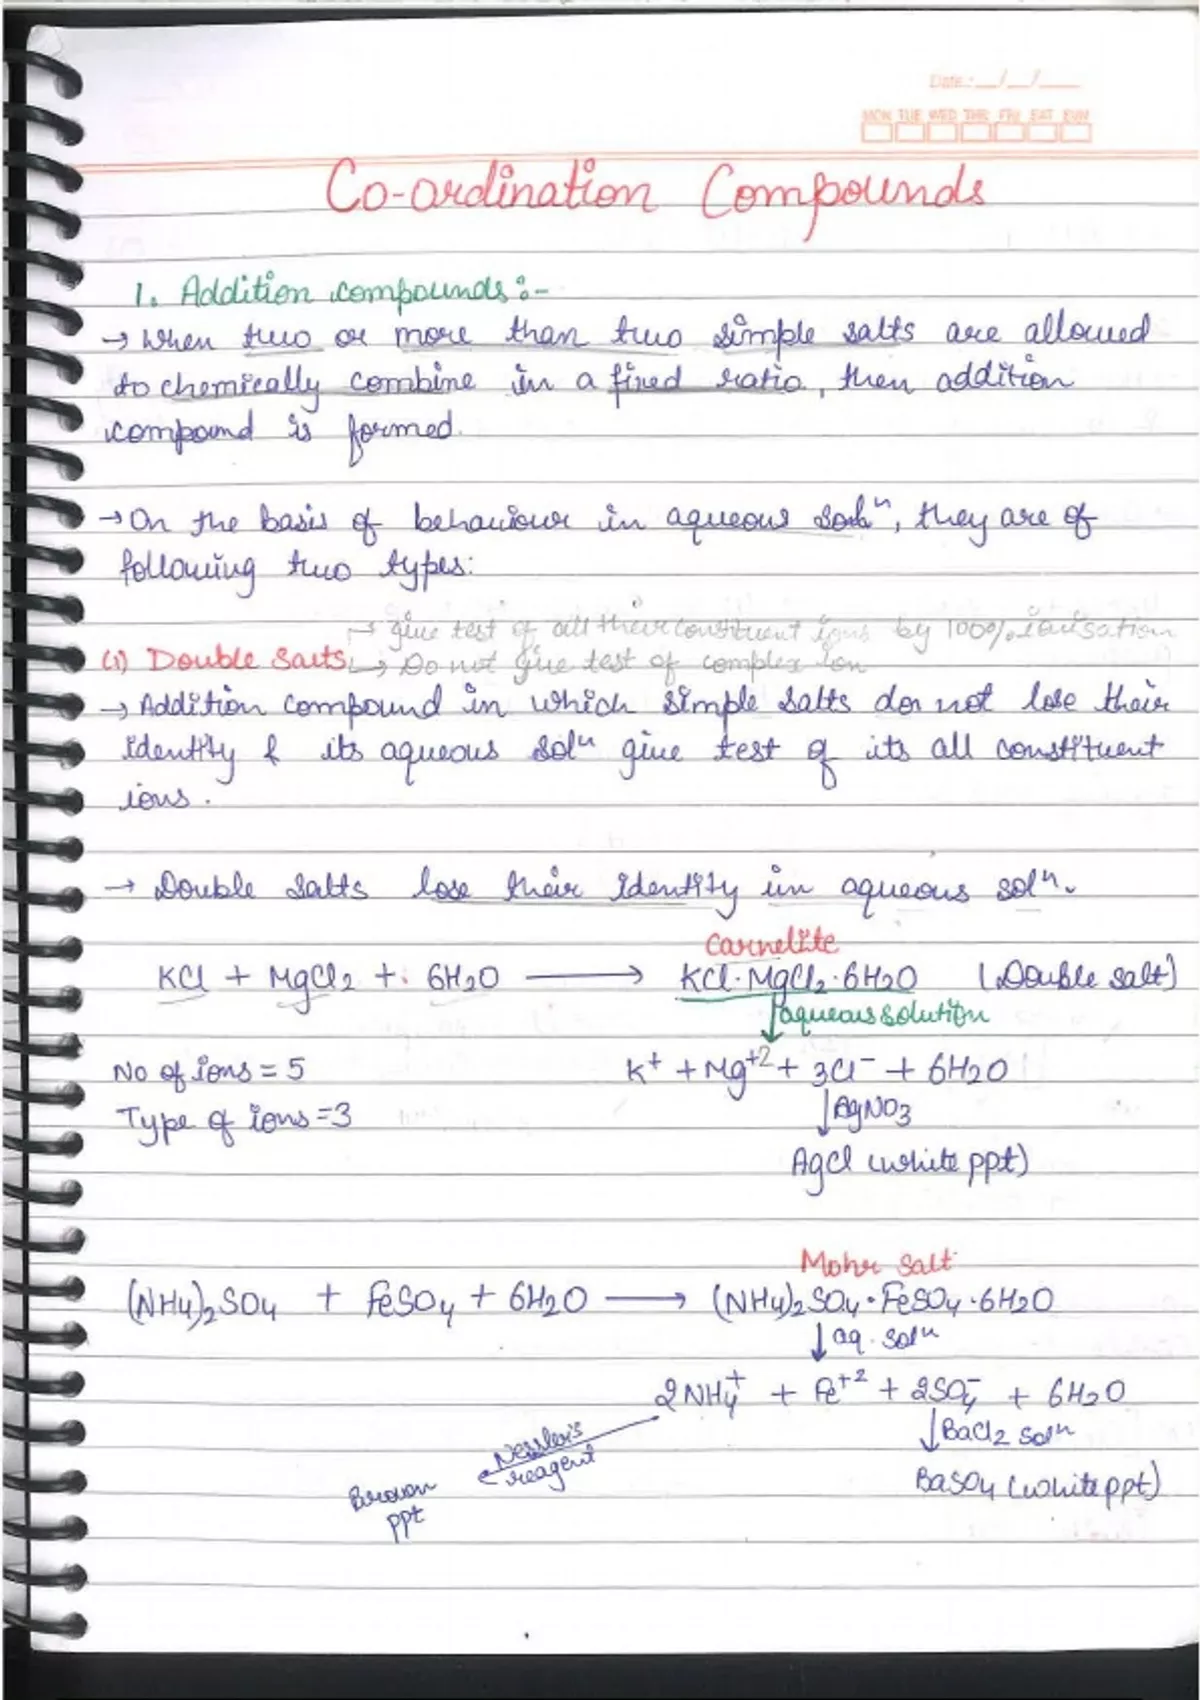 Date:- __/__/____
MON TUE WED THU FRI SAT SUN
Co-ordination Compounds
1. Addition compounds :-
→ When two or more than two simple salts are allowed
to chemically combine in a fixed ratio, then addition
compound is formed.
→ On the basis of behaviour in aqueous solⁿ, they are of
following two types:
→ give test of all their constituent ions by 100% ionisation
(1) Double Salts → Do not give test of complex ion
→ Addition compound in which simple salts do not lose their
identity & its aqueous solⁿ give test of its all constituent
ions.
→ Double salts lose their identity in aqueous solⁿ.
Carnelite
KCl + MgCl2 + 6H2O ⟶ KCl·MgCl2·6H2O (Double salt)
↓ aqueous solution
No of ions = 5 K⁺ + Mg⁺² + 3Cl⁻ + 6H2O
Type of ions = 3 ↓ AgNO3
AgCl (white ppt)
Mohr salt
(NH4)2SO4 + FeSO4 + 6H2O ⟶ (NH4)2SO4·FeSO4·6H2O
↓ aq. solⁿ
2NH4⁺ + Fe⁺² + 2SO4⁻ + 6H2O
Nessler's reagent ↓ BaCl2 solⁿ
Brown ppt BaSO4 (white ppt)